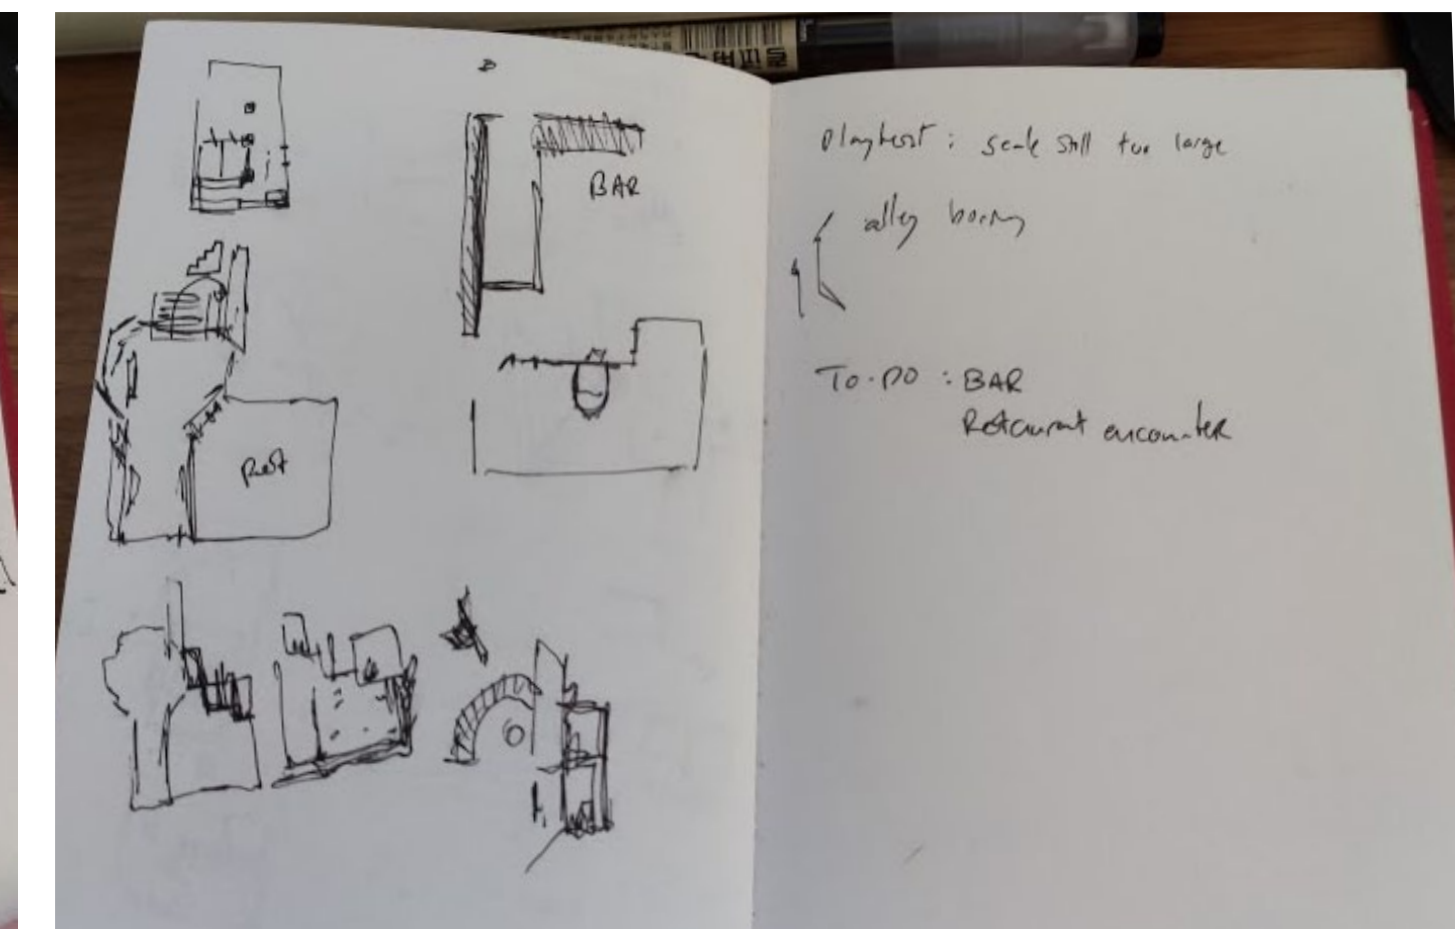 BAR
Rest
Playtest : scale still too large
alley boring
To-Do : BAR
Restaurant encounter